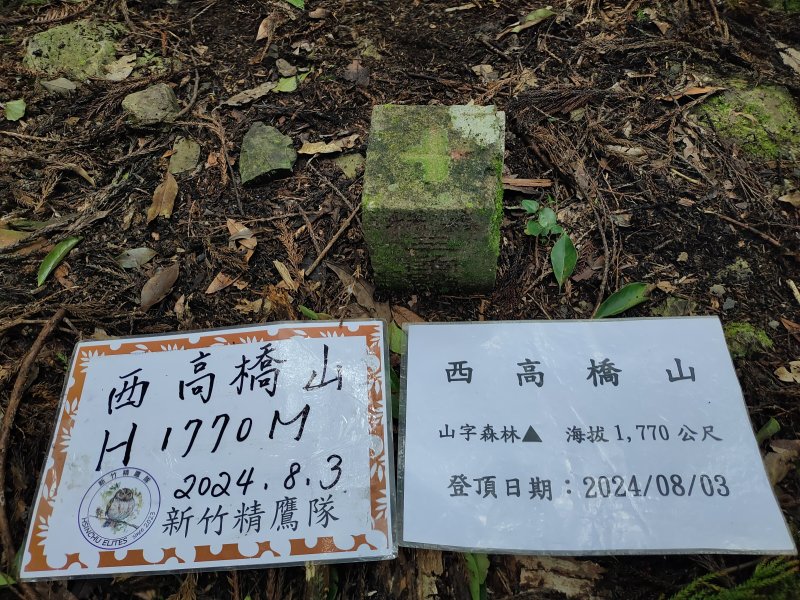 西高橋山
H 1770M
2024.8.3
新竹精鷹隊
HSINCHU ELITES
西高橋山
山字森林▲ 海拔1,770公尺
登頂日期：2024/08/03